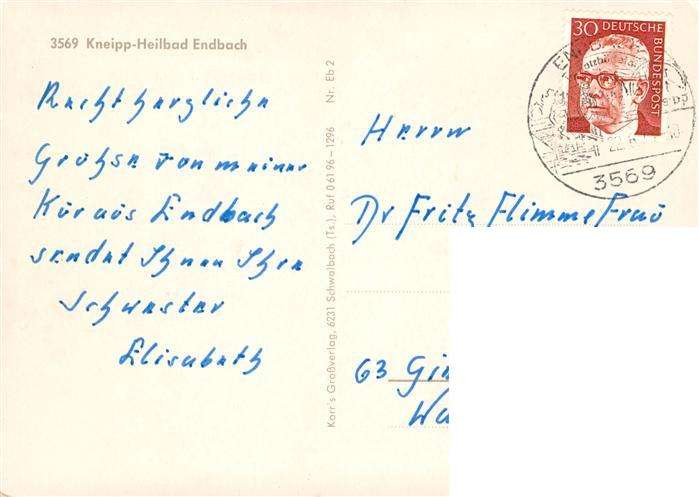 3569 Kneipp-Heilbad Endbach
Recht herzliche
Grüße von meiner
Kur aus Endbach
sendet Ihnen Ihre
Schwester
Elisabeth
Karr's Großverlag, 6231 Schwalbach (Ts.), Ruf 0 61 96 – 1296 Nr. Eb 2
30 DEUTSCHE BUNDESPOST
3569
Herrn
Dr Fritz
63